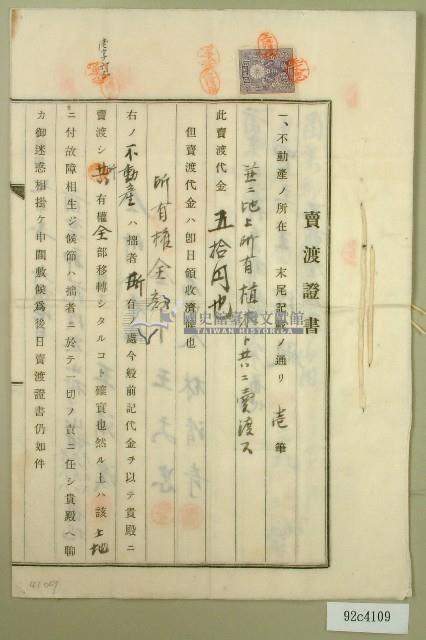 賣渡證書
一、不動產ノ所在 末尾記載ノ通リ 壱筆
並ニ地上所有植木ト共ニ賣渡ス
此賣渡代金 五拾円也
但賣渡代金ハ卽日領收濟候也
所有權全部
右ノ不動產ハ拙者所有ノ處今般前記代金ヲ以テ貴殿ニ
賣渡シ共所有權全部移轉シタルコト確實也然ル上ハ該土地
ニ付故障相生ジ候節ハ拙者ニ於テ一切ノ責ニ任シ貴殿ヘ聊
カ御迷惑相掛ケ申間敷候爲後日賣渡證書仍如件
國史館臺灣文獻館
TAIWAN HISTORICA
92c4109